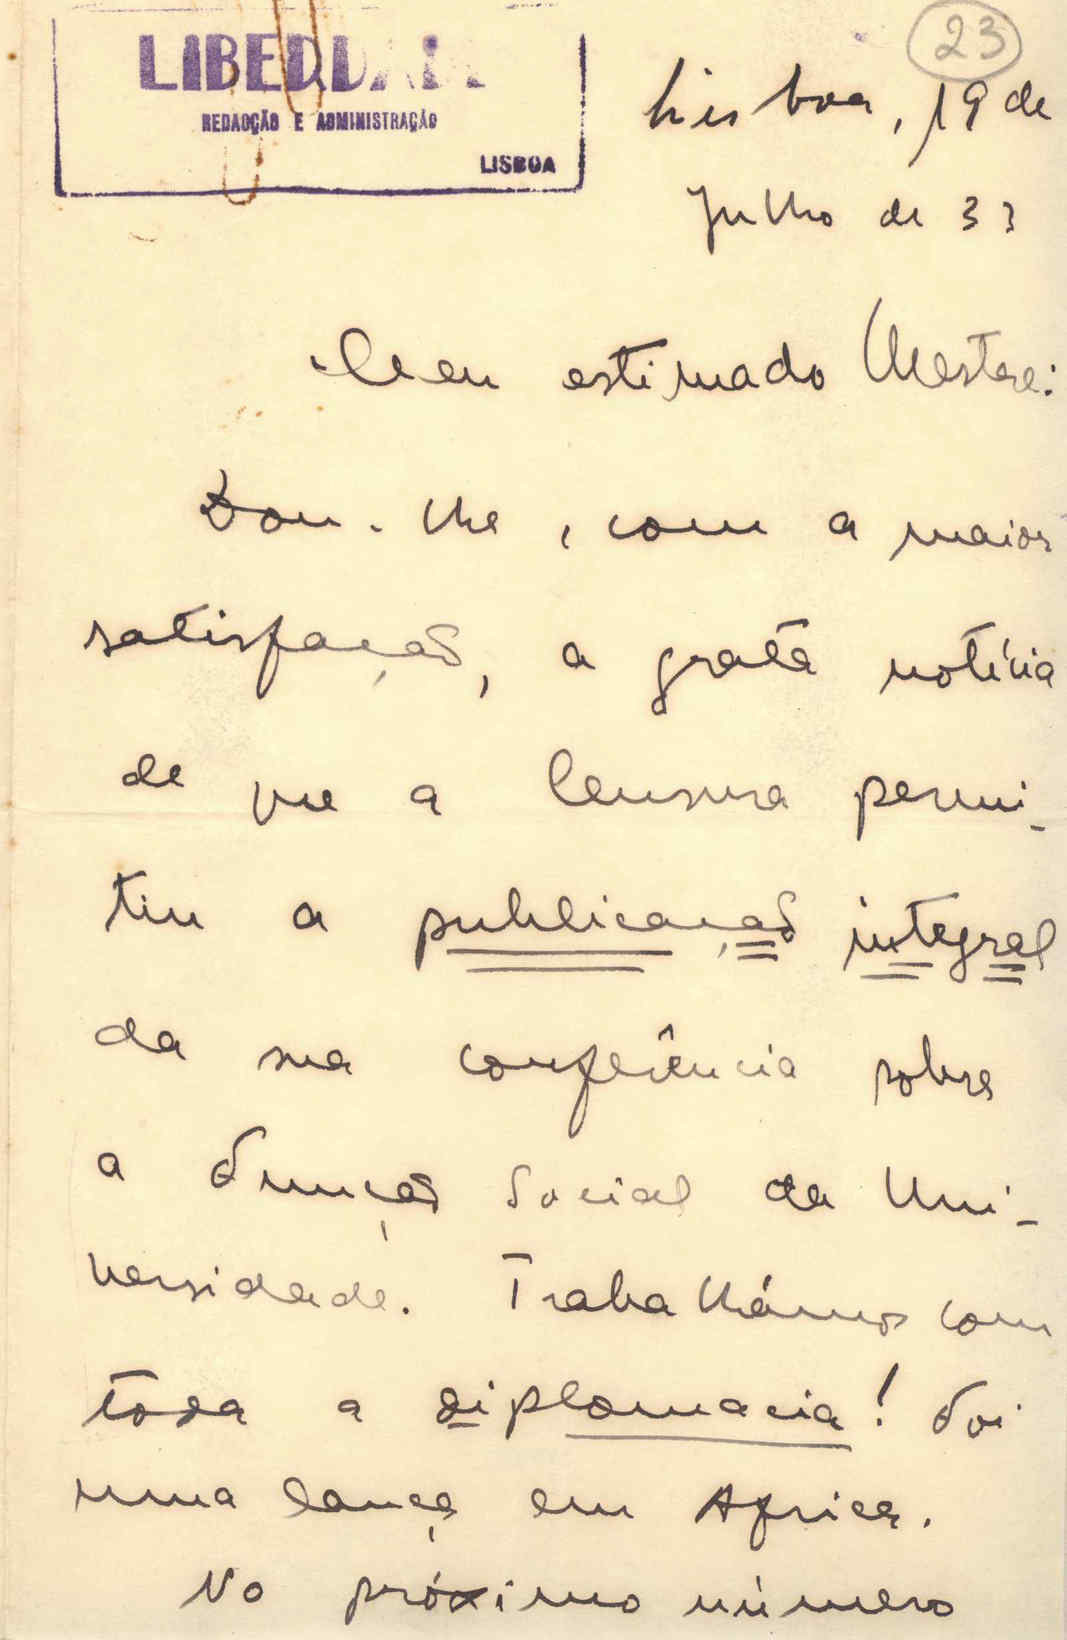 LIBERDADE
REDACÇÃO E ADMINISTRAÇÃO
LISBOA
23
Lisboa, 19 de
Julho de 33
Meu estimado Mestre:
Dou-lhe, com a maior
satisfação, a grata notícia
de que a Censura permi-
tiu a publicação integral
da sua conferência sobre
a Função Social da Uni-
versidade. Trabalhámos com
toda a diplomacia! Foi
uma lança em Africa.
No próximo número